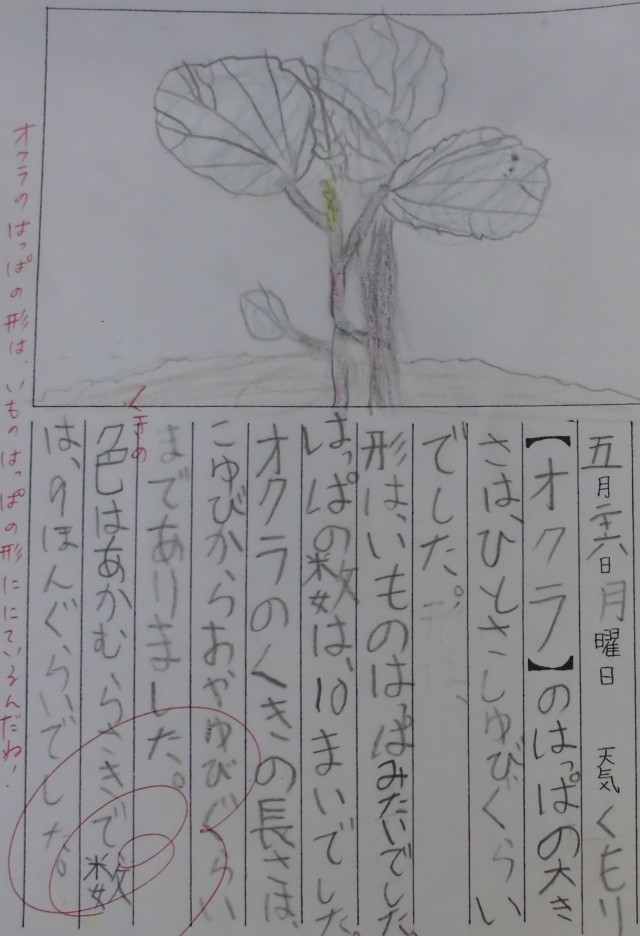 五月二十六日 月曜日 天気 くもり
【オクラ】のはっぱの大き
さは、ひとさしゆびぐらい
でした。
形は、いものはっぱみたいでした。
はっぱの数は、10まいでした。
オクラのくきの長さは、
こゆびからおやゆびぐらい
まてありました。
くきの
色はあかむらさきで数
は、9ほんぐらいでした。
オクラのはっぱの形は、いものはっぱの形ににているんだね!